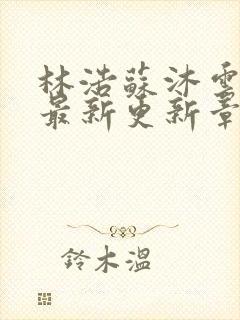 林浩蘇沐雪
最新更新章
鈴木溫